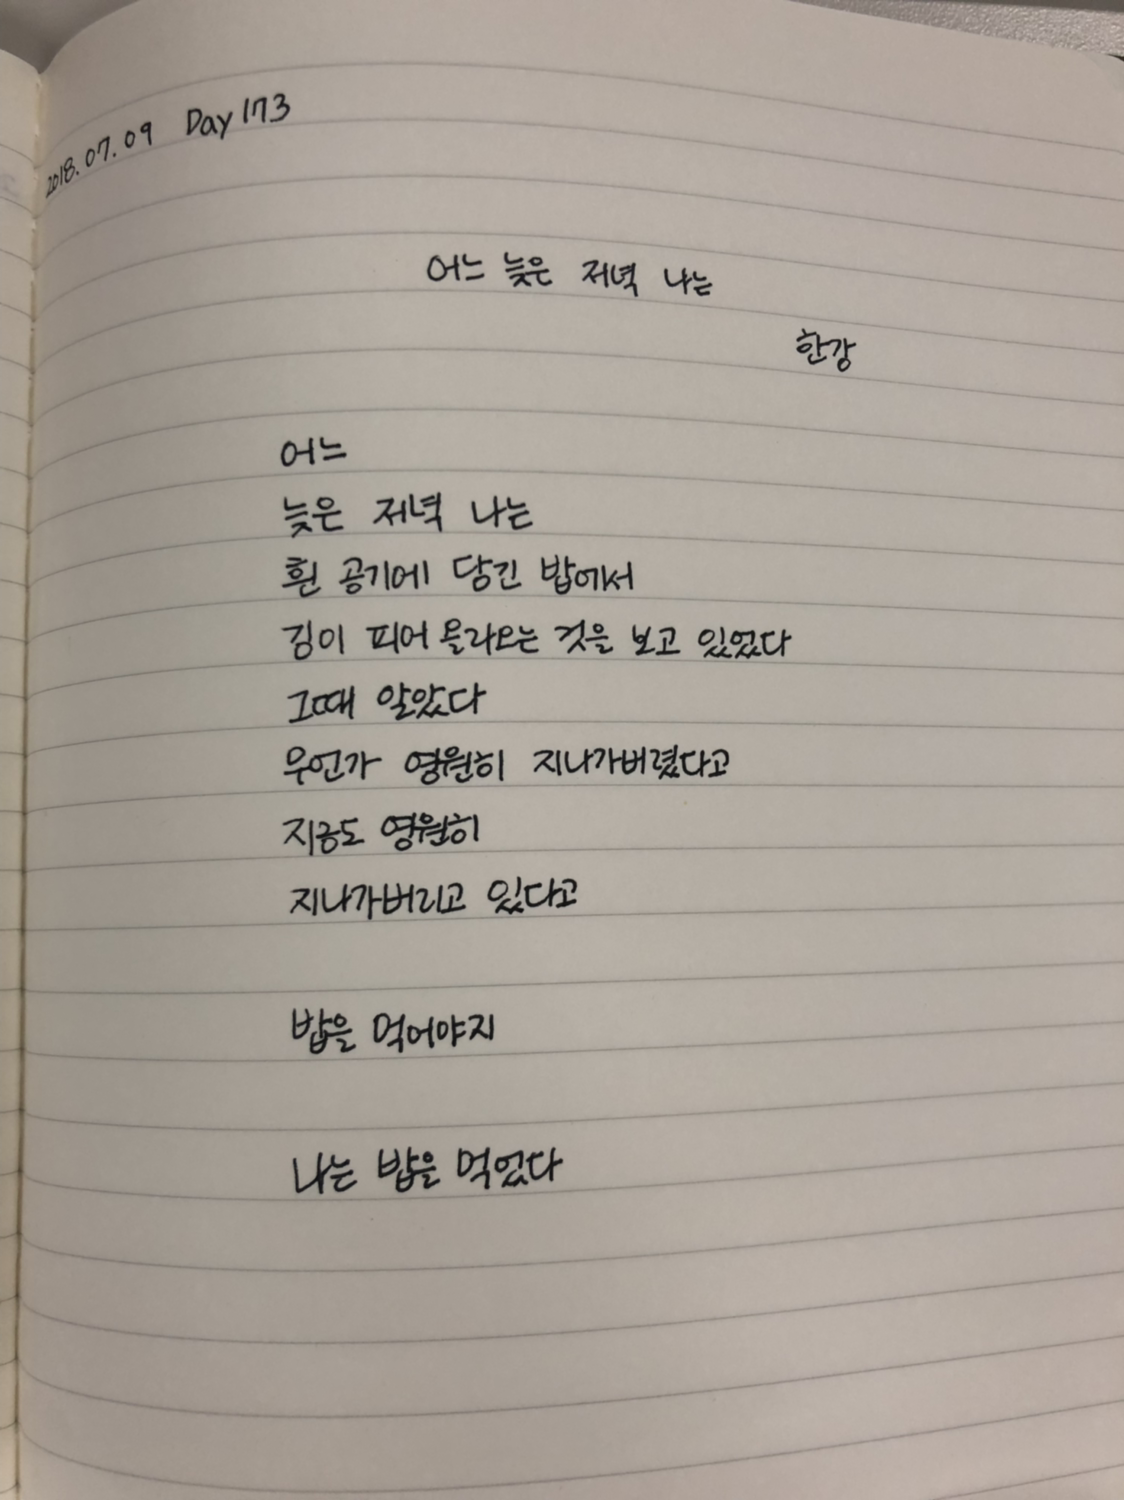 2018.07.09 Day 173
어느 늦은 저녁 나는
한강
어느
늦은 저녁 나는
흰 공기에 담긴 밥에서
김이 피어 올라오는 것을 보고 있었다
그때 알았다
무언가 영원히 지나가버렸다고
지금도 영원히
지나가버리고 있다고
밥을 먹어야지
나는 밥을 먹었다